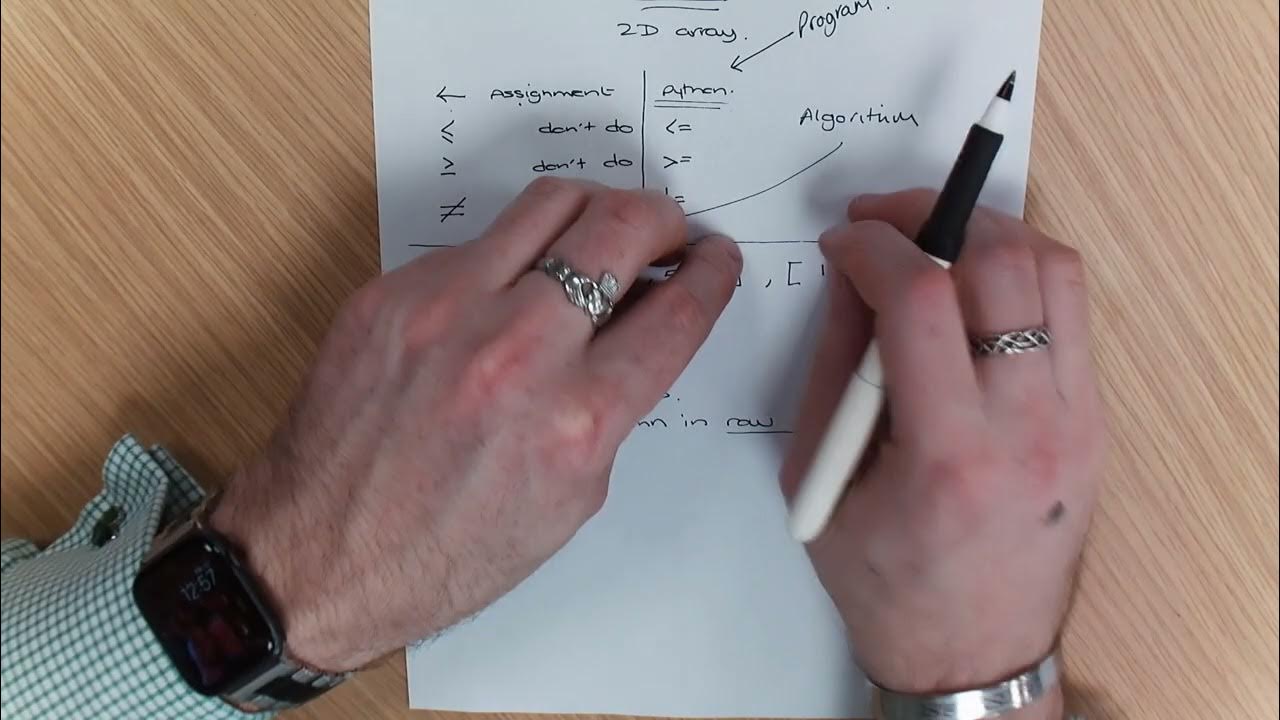 2D array.
Program.
← Assignment Python.
≤ don't do <=
≥ don't do >=
Algorithm
≠ !=
, [ '
in row
12:57